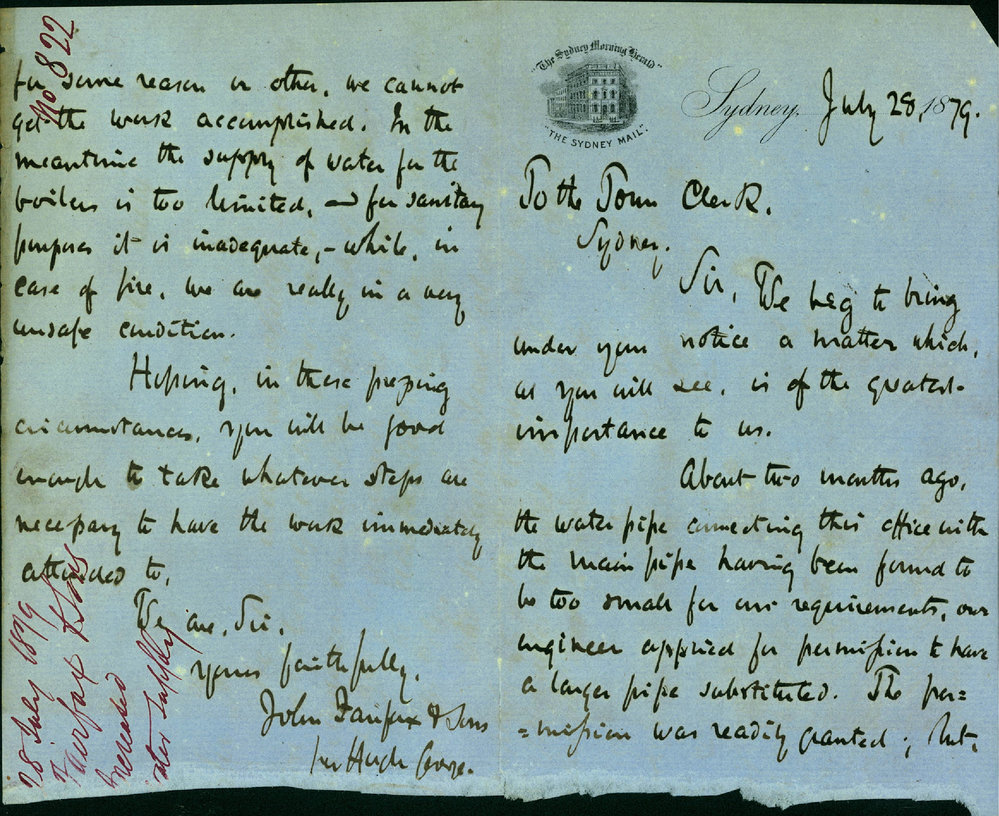 "The Sydney Morning Herald"
"THE SYDNEY MAIL".
Sydney, July 28, 1879.
To the Town Clerk,
Sydney.
Sir, We beg to bring
under your notice a matter which,
as you will see, is of the greatest
importance to us.
About two months ago,
the water pipe connecting this office with
the main pipe having been found to
be too small for our requirements, our
engineer applied for permission to have
a larger pipe substituted. The per=
=mission was readily granted; but,
for some reason or other, we cannot
get the work accomplished. In the
meantime the supply of water for the
boilers is too limited, and for sanitary
purposes it is inadequate, - while, in
case of fire, we are really in a very
unsafe condition.
Hoping, in these pressing
circumstances, you will be good
enough to take whatever steps are
necessary to have the work immediately
attended to,
We are, Sir,
yours faithfully,
John Fairfax & Sons
per Hugh George.
No 822
28 July 1879
Fairfax & Sons
Increased
water supply